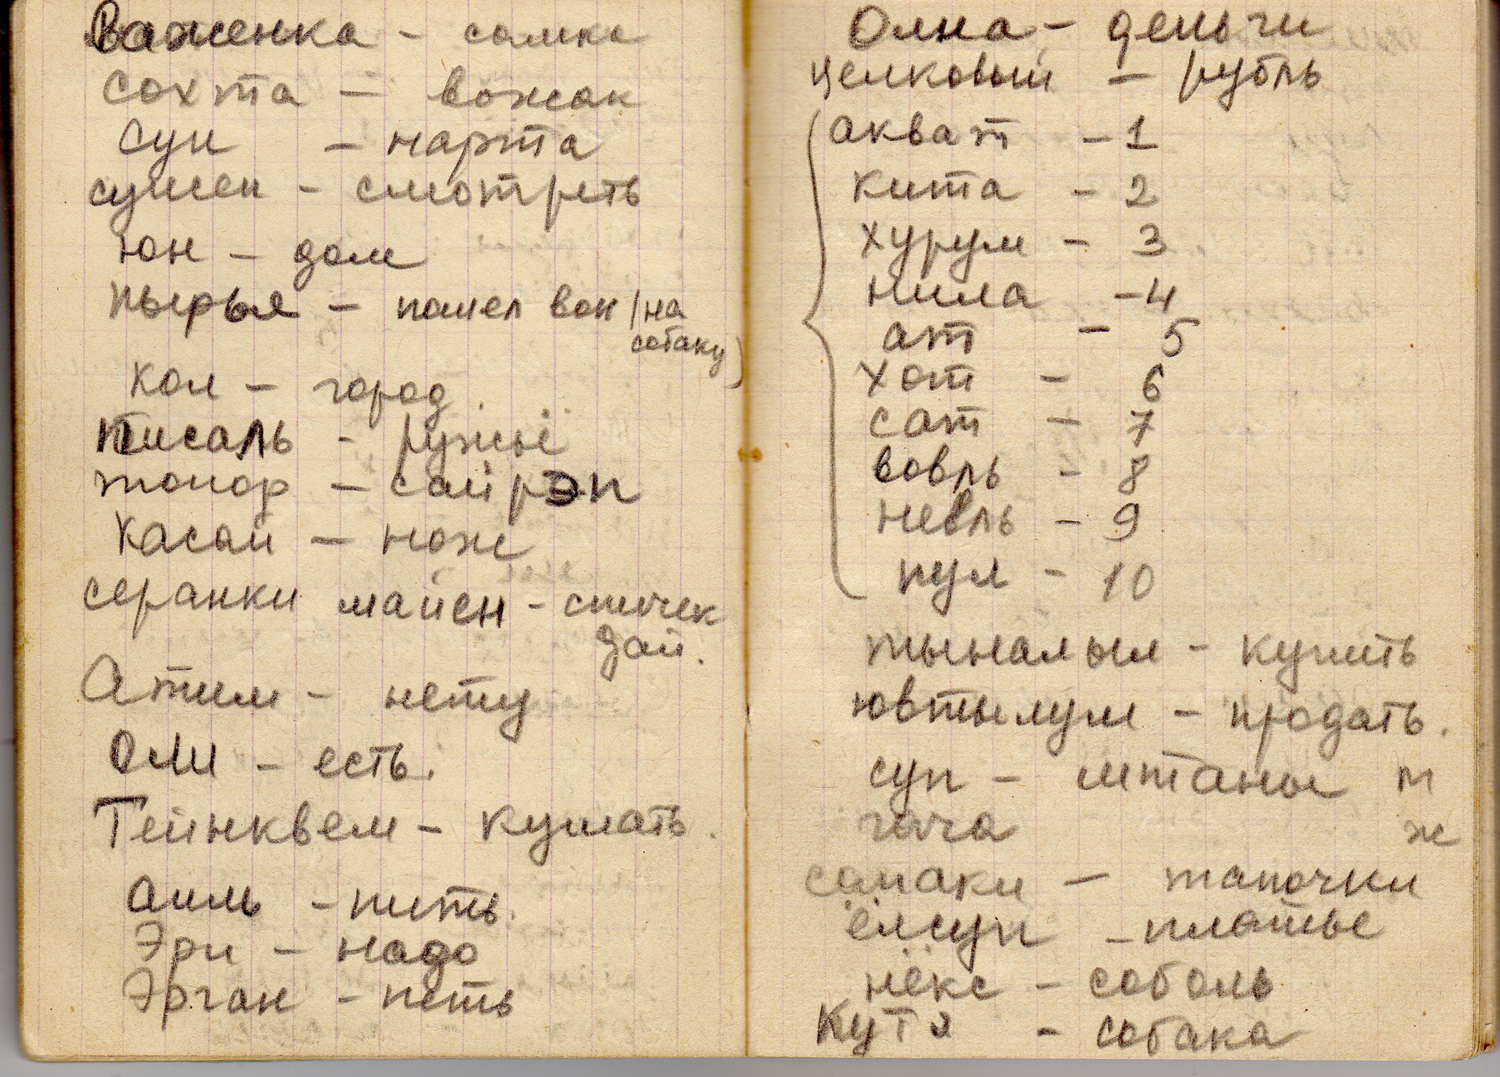 Важенка - самка
Сохта - вожак
Сун - нарта
сунсеп - смотреть
юн - дом
пырья - пошел вон (на
собаку)
Кол - город
писаль - ружьё
топор - сайрэп
Касай - нож
серанки майен - спичек
дай.
Атим - нету
Оли - есть.
Тейнквем - кушать.
аиль - пить.
Эри - надо
Эрган - петь
Олна - деньги
целковый - рубль
акват - 1
кита - 2
хурум - 3
нила - 4
ат - 5
хот - 6
сат - 7
вовль - 8
невль - 9
пул - 10
тыналыл - купить
ювтылум - продать.
суп - штаны м
гача ж
сапаки - тапочки
ёлсуп - платье
нёкс - соболь
Кутя - собака